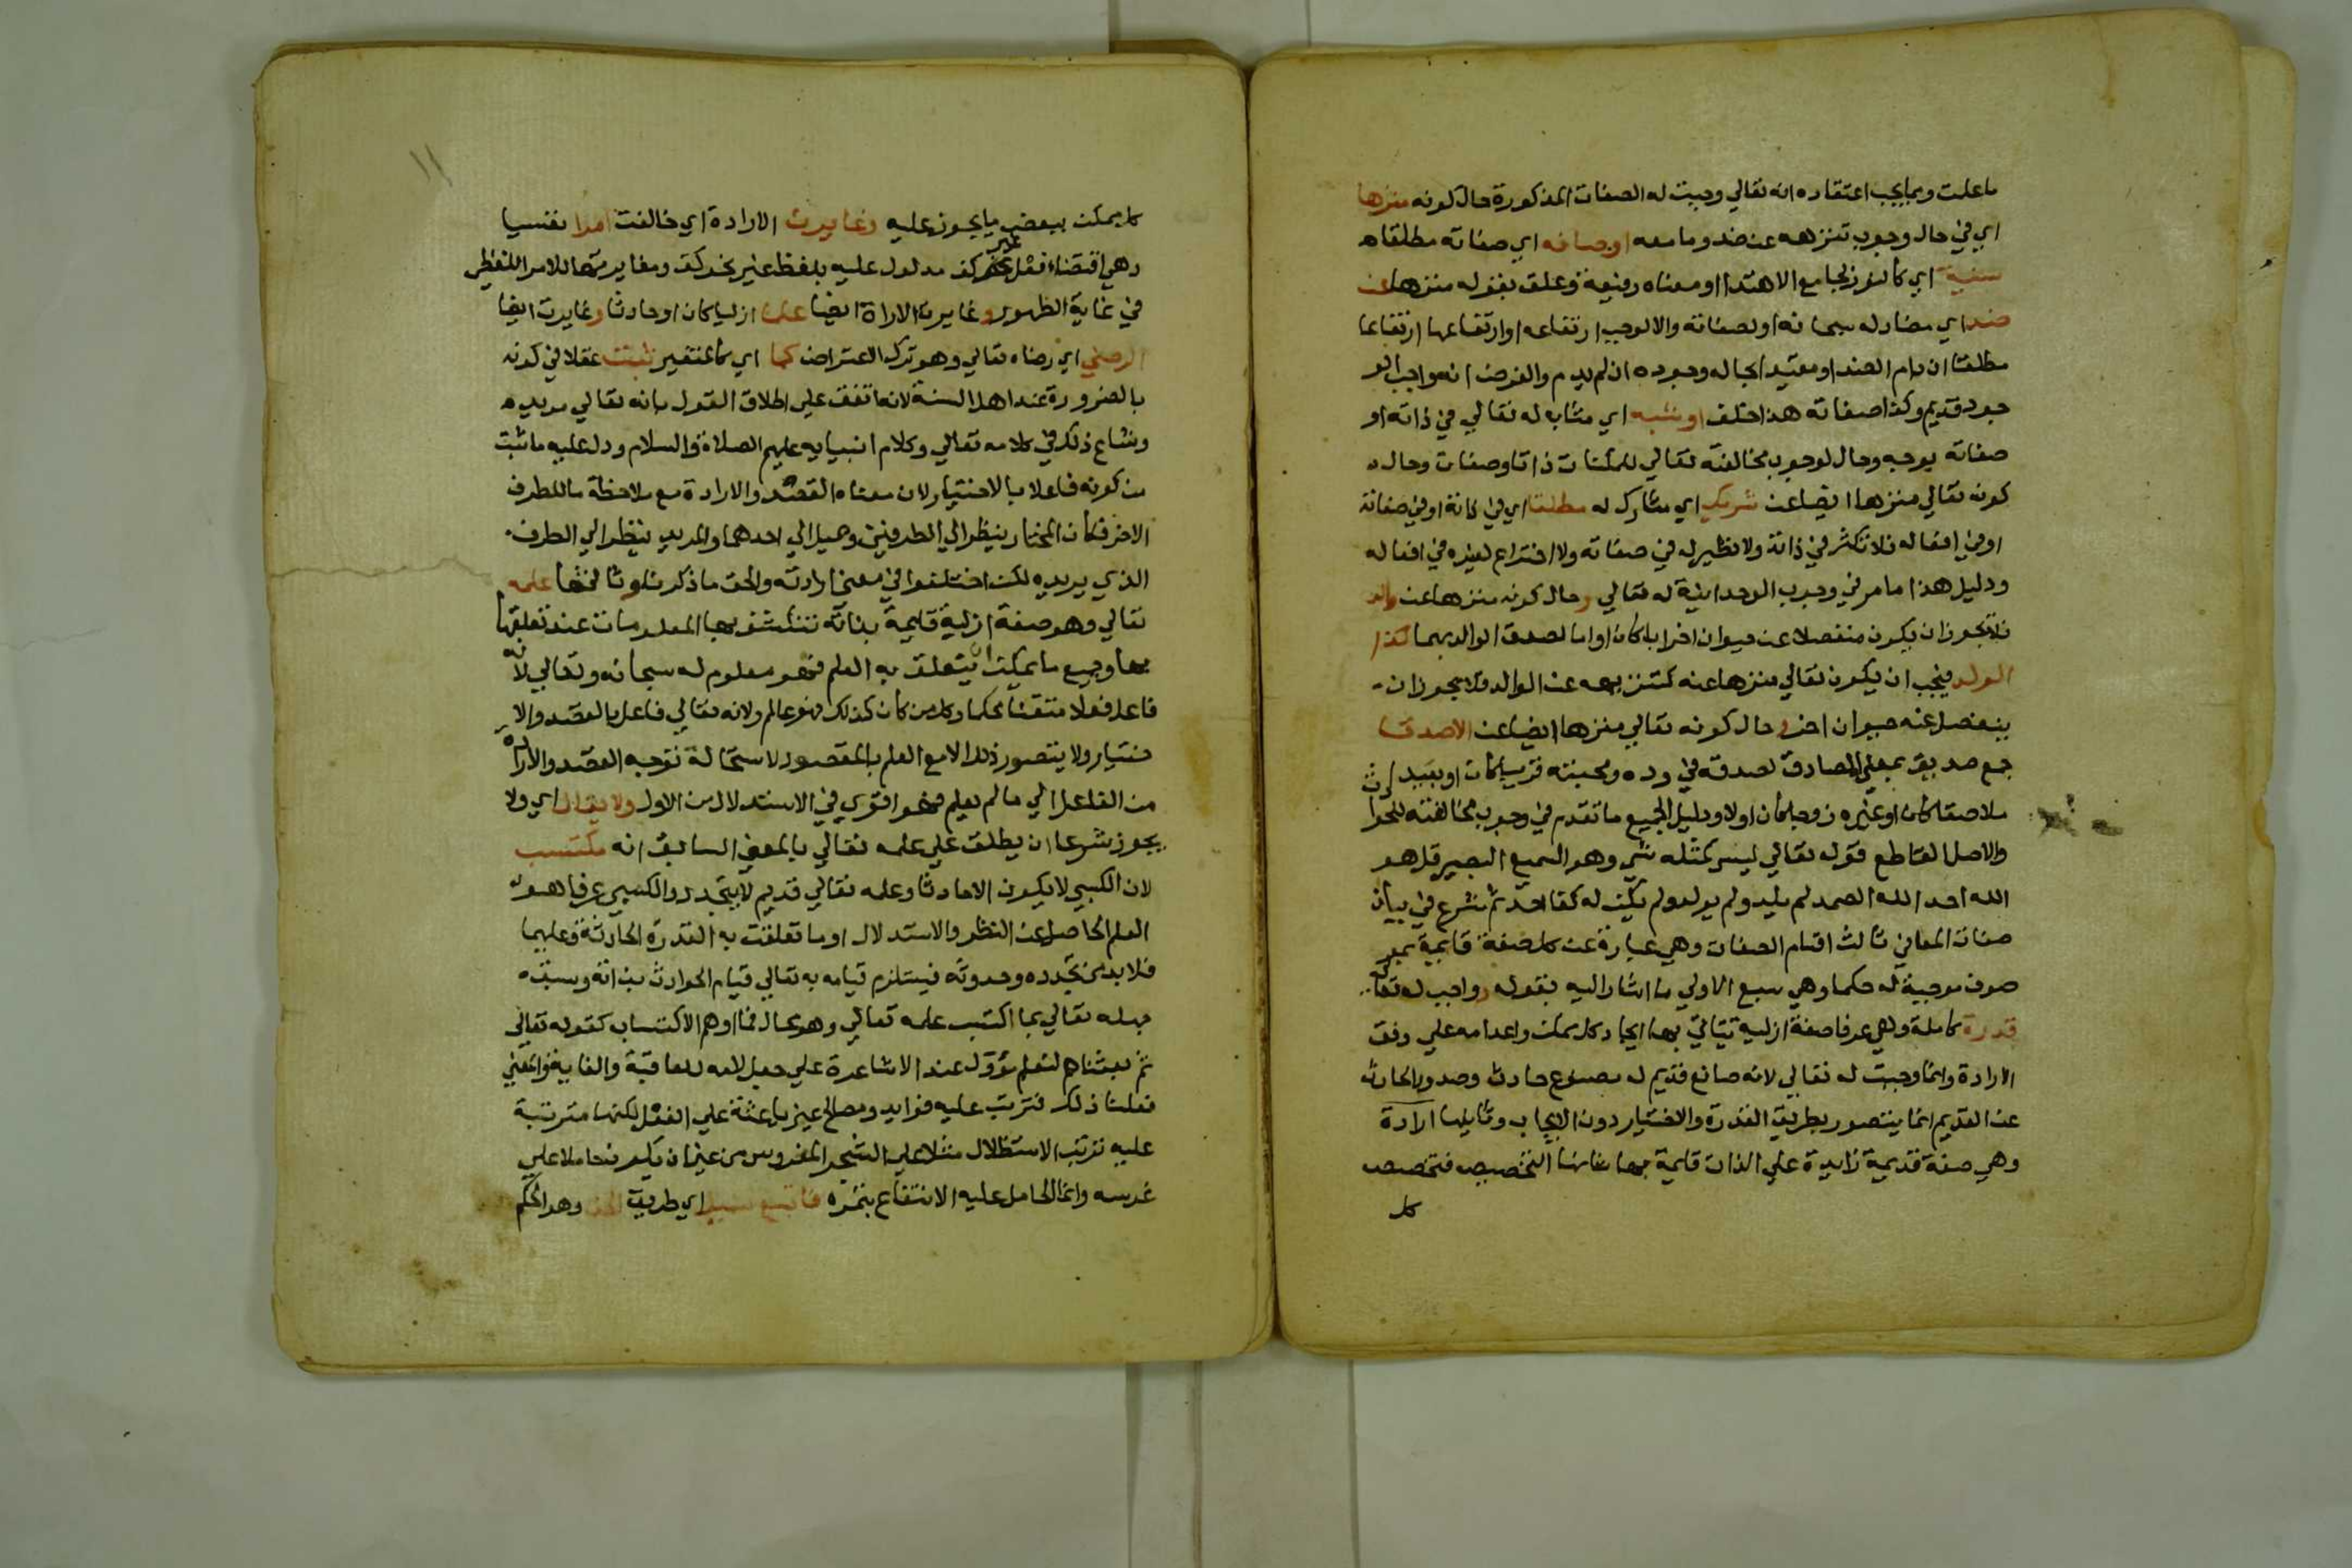 ما علمت ومما يجب اعتقاده انه تعالي وجبت له الصفات المذكورة حال كونه منزها
اي في حال وجوب تنزهه عن ضد وما معه اوصافه اي صفاته مطلقا
سنية اي كالنور بجامع الاهتدا او معناه رفيعة وعلق بقوله منزها عن
ضد اي مضاد له سبحانه او لصفاته والا لوجب ارتفاعه او ارتفاعها ارتفاعا
مطلقا ان دام الضد او مقيدا بحالة وجوده ان لم يدم والفرض انه واجب الو
جود قديم وكذا صفاته هذا خلف او شبه اي مشابه له تعالي في ذاته او
صفاته بوجه وحال لوجوب مخالفته تعالي للممكنات ذاتا وصفات وحال
كونه تعالي منزها ايضا عن شريك اي مشارك له مطلقا اي في ذاته او في صفاته
او في افعاله فلا تكثر في ذاته ولا نظير له في صفاته ولا اختراع لغيره في افعاله
ودليل هذا ما مر في وجوب الوحدانية له تعالي وحال كونه منزها عن والد
فلا يجوز ان يكون منفصلا عن حيوان اخر ابا كان او اما لصدق الوالد بهما كذا
الولد فيجب ان يكون تعالي منزها عنه كتنزيهه عن الوالد فلا يجوز ان
ينفصل عنه حيوان اخر وحال كونه تعالي منزها ايضا عن الاصدقا
جمع صديق بمعني المصادق لصدقه في وده ومحبته قريبا كان او بعيدا
ملاصقا كان او غيره زوجا كان اولا ودليل الجميع ما تقدم في وجوب مخالفته للحوادث
والاصل القاطع قوله تعالي ليس كمثله شي وهو السميع البصير قل هو
الله احد الله الصمد لم يلد ولم يولد ولم يكن له كفا احد ثم شرع في بيان
صفات المعاني ثالث اقسام الصفات وهي عبارة عن كل صفة قايمة بمو
صوف موجبة له حكما وهي سبع الاولي ما اشار اليه بقوله وواجب له تعالي
قدرة كاملة وهي عرفا صفة ازلية يتاتي بها ايجاد كل ممكن واعدامه علي وفق
الارادة وانما وجبت له تعالي لانه صانع قديم له مصنوع حادث وصدور الحادث
عن القديم انما يتصور بطريق القدرة والاختيار دون الايجاب وثانيها ارادة
وهي صفة قديمة زايدة علي الذات قايمة بها شانها التخصيص فتخصص
كل
١١
كل ممكن ببعض ما يجوز عليه وغايرت الارادة اي خالفت امرا نفسيا
وهي اقتضاء فعل غير كف مدلول عليه بلفظ غير نحو كف ومغايرتها للامر اللفظي
في غاية الظهور وغايرت الارادة ايضا علما ازليا كان او حادثا وغايرت ايضا
الرضي اي رضاه تعالي وهو ترك الاعتراض كما اي كالتغير ثبت عقلا في كونه
بالضرورة عند اهل السنة لانه اتفق علي اطلاق القول بانه تعالي مريد
وشاع ذلك في كلامه تعالي وكلام انبيايه عليهم الصلاة والسلام ودل عليه ما ثبت
من كونه فاعلا بالاختيار لان معناه القصد والارادة مع ملاحظة ما للطرف
الاخر فكان المختار ينظر الي الطرفين ويميل الي احدهما والمريد ينظر الي الطرف
الذي يريده لكن اختلفوا في معني ارادته والحق ما ذكر وثالثها علمه
تعالي وهو صفة ازلية قايمة بذاته تنكشف بها المعلومات عند تعلقها
بها وجميع ما يمكن ان يتعلق به العلم فهو معلوم له سبحانه وتعالي لانه
فاعل فعلا متقنا محكما وكل من كان كذلك فهو عالم ولانه تعالي فاعل بالقصد والا
ختيار ولا يتصور ذلك الا مع العلم بالمقصود لاستحالة توجه القصد والارادة
من الفاعل الي ما لم يعلم فهو اقوي في الاستدلال من الاول ولا يقال اي ولا
يجوز شرعا ان يطلق علي علمه تعالي بالمعني السابق انه مكتسب
لان الكسبي لا يكون الا حادثا وعلمه تعالي قديم لا يتجدد والكسبي عرفا هو
العلم الحاصل عن النظر والاستدلال او ما تعلقت به القدرة الحادثة وعليهما
فلا بد من تجدده وحدوثه فيستلزم قيامه به تعالي قيام الحوادث بذاته وسبق
جهله تعالي بما اكتسب علمه تعالي وهو محال فما اوهم الاكتساب كقوله تعالي
ثم بعثناهم لنعلم مؤول عند الاشاعرة علي جعل لامه للعاقبة والغاية فالمعني
فعلنا ذلك فترتب عليه فوايد ومصالح غير باعثة علي الفعل لكنها مترتبة
عليه ترتب الاستظلال مثلا علي الشجر المغروس من غير ان يكون حاملا علي
غرسه وانما الحامل عليه الانتفاع بثمره فاتبع سبيل اي طريق الحق وهو الحكم